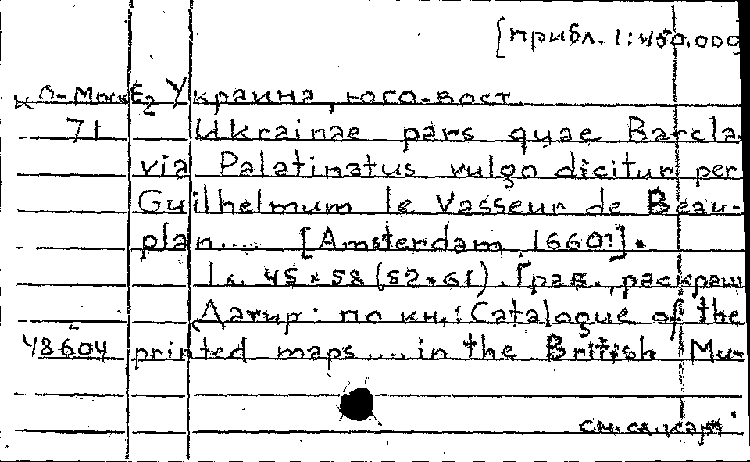 [прибл. 1:450.000
К О-МлкЕ2 Украина, юго-вост.
71 Ukrainae pars quae Barcla
via Palatinatus vulgo dicitur per
Guilhelmum le Vasseur de Beau-
plan.... [Amsterdam, 1660?].
1 л. 45×58 (52×61). Грав., раскраш
Датир: по кн.: Catalogue of the
48604 printed maps.... in the British Mu-
см. сл. карт